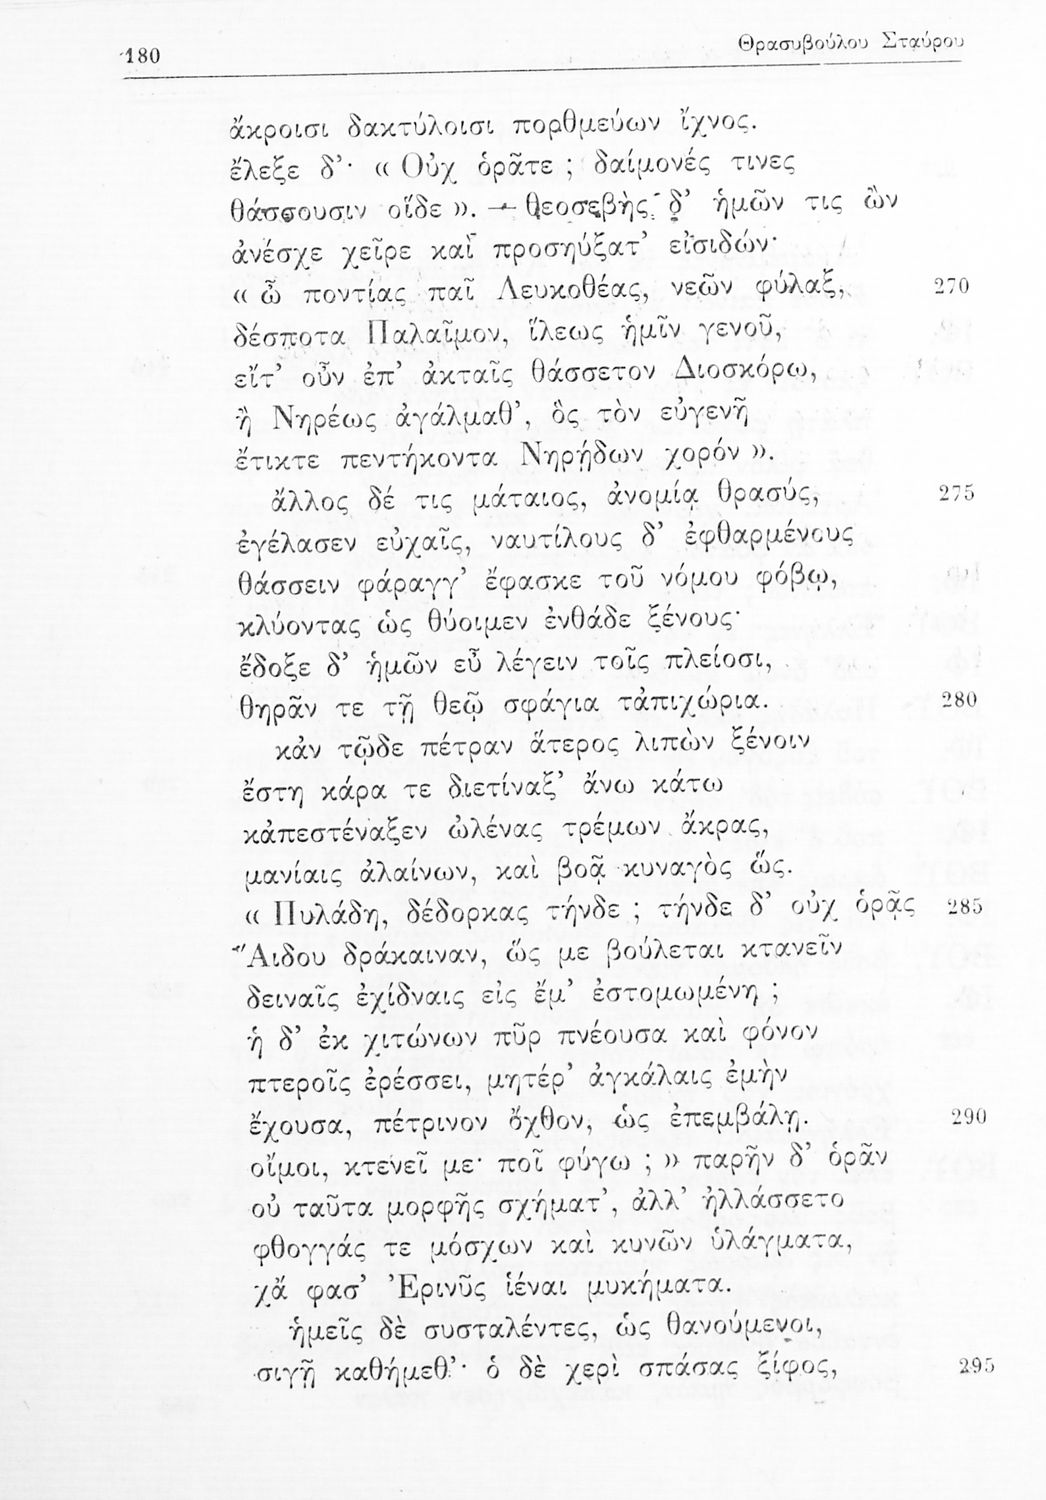 180
Θρασυβούλου Σταύρου
ἄκροισι δακτύλοισι πορθμεύων ἴχνος.
ἔλεξε δ’· « Οὐχ ὁρᾶτε ; δαίμονές τινες
θάσσουσιν οἵδε ». — θεοσεβὴς δ’ ἡμῶν τις ὢν
ἀνέσχε χεῖρε καὶ προσηύξατ’ εἰσιδών·
« ὦ ποντίας παῖ Λευκοθέας, νεῶν φύλαξ, 270
δέσποτα Παλαῖμον, ἵλεως ἡμῖν γενοῦ,
εἴτ’ οὖν ἐπ’ ἀκταῖς θάσσετον Διοσκόρω,
ἢ Νηρέως ἀγάλμαθ’, ὃς τὸν εὐγενῆ
ἔτικτε πεντήκοντα Νηρῄδων χορόν ».
ἄλλος δέ τις μάταιος, ἀνομίᾳ θρασύς, 275
ἐγέλασεν εὐχαῖς, ναυτίλους δ’ ἐφθαρμένους
θάσσειν φάραγγ’ ἔφασκε τοῦ νόμου φόβῳ,
κλύοντας ὡς θύοιμεν ἐνθάδε ξένους·
ἔδοξε δ’ ἡμῶν εὖ λέγειν τοῖς πλείοσι,
θηρᾶν τε τῇ θεῷ σφάγια τἀπιχώρια. 280
κἀν τῷδε πέτραν ἅτερος λιπὼν ξένοιν
ἔστη κάρα τε διετίναξ’ ἄνω κάτω
κἀπεστέναξεν ὠλένας τρέμων ἄκρας,
μανίαις ἀλαίνων, καὶ βοᾷ κυναγὸς ὥς.
« Πυλάδη, δέδορκας τήνδε ; τήνδε δ’ οὐχ ὁρᾷς 285
Ἅιδου δράκαιναν, ὥς με βούλεται κτανεῖν
δειναῖς ἐχίδναις εἰς ἔμ’ ἐστομωμένη ;
ἡ δ’ ἐκ χιτώνων πῦρ πνέουσα καὶ φόνον
πτεροῖς ἐρέσσει, μητέρ’ ἀγκάλαις ἐμὴν
ἔχουσα, πέτρινον ὄχθον, ὡς ἐπεμβάλῃ. 290
οἴμοι, κτενεῖ με· ποῖ φύγω ; » παρῆν δ’ ὁρᾶν
οὐ ταῦτα μορφῆς σχήματ’, ἀλλ’ ἠλλάσσετο
φθογγάς τε μόσχων καὶ κυνῶν ὑλάγματα,
χἄ φασ’ Ἐρινῦς ἱέναι μυκήματα.
ἡμεῖς δὲ συσταλέντες, ὡς θανούμενοι,
σιγῇ καθήμεθ’· ὁ δὲ χερὶ σπάσας ξίφος, 295